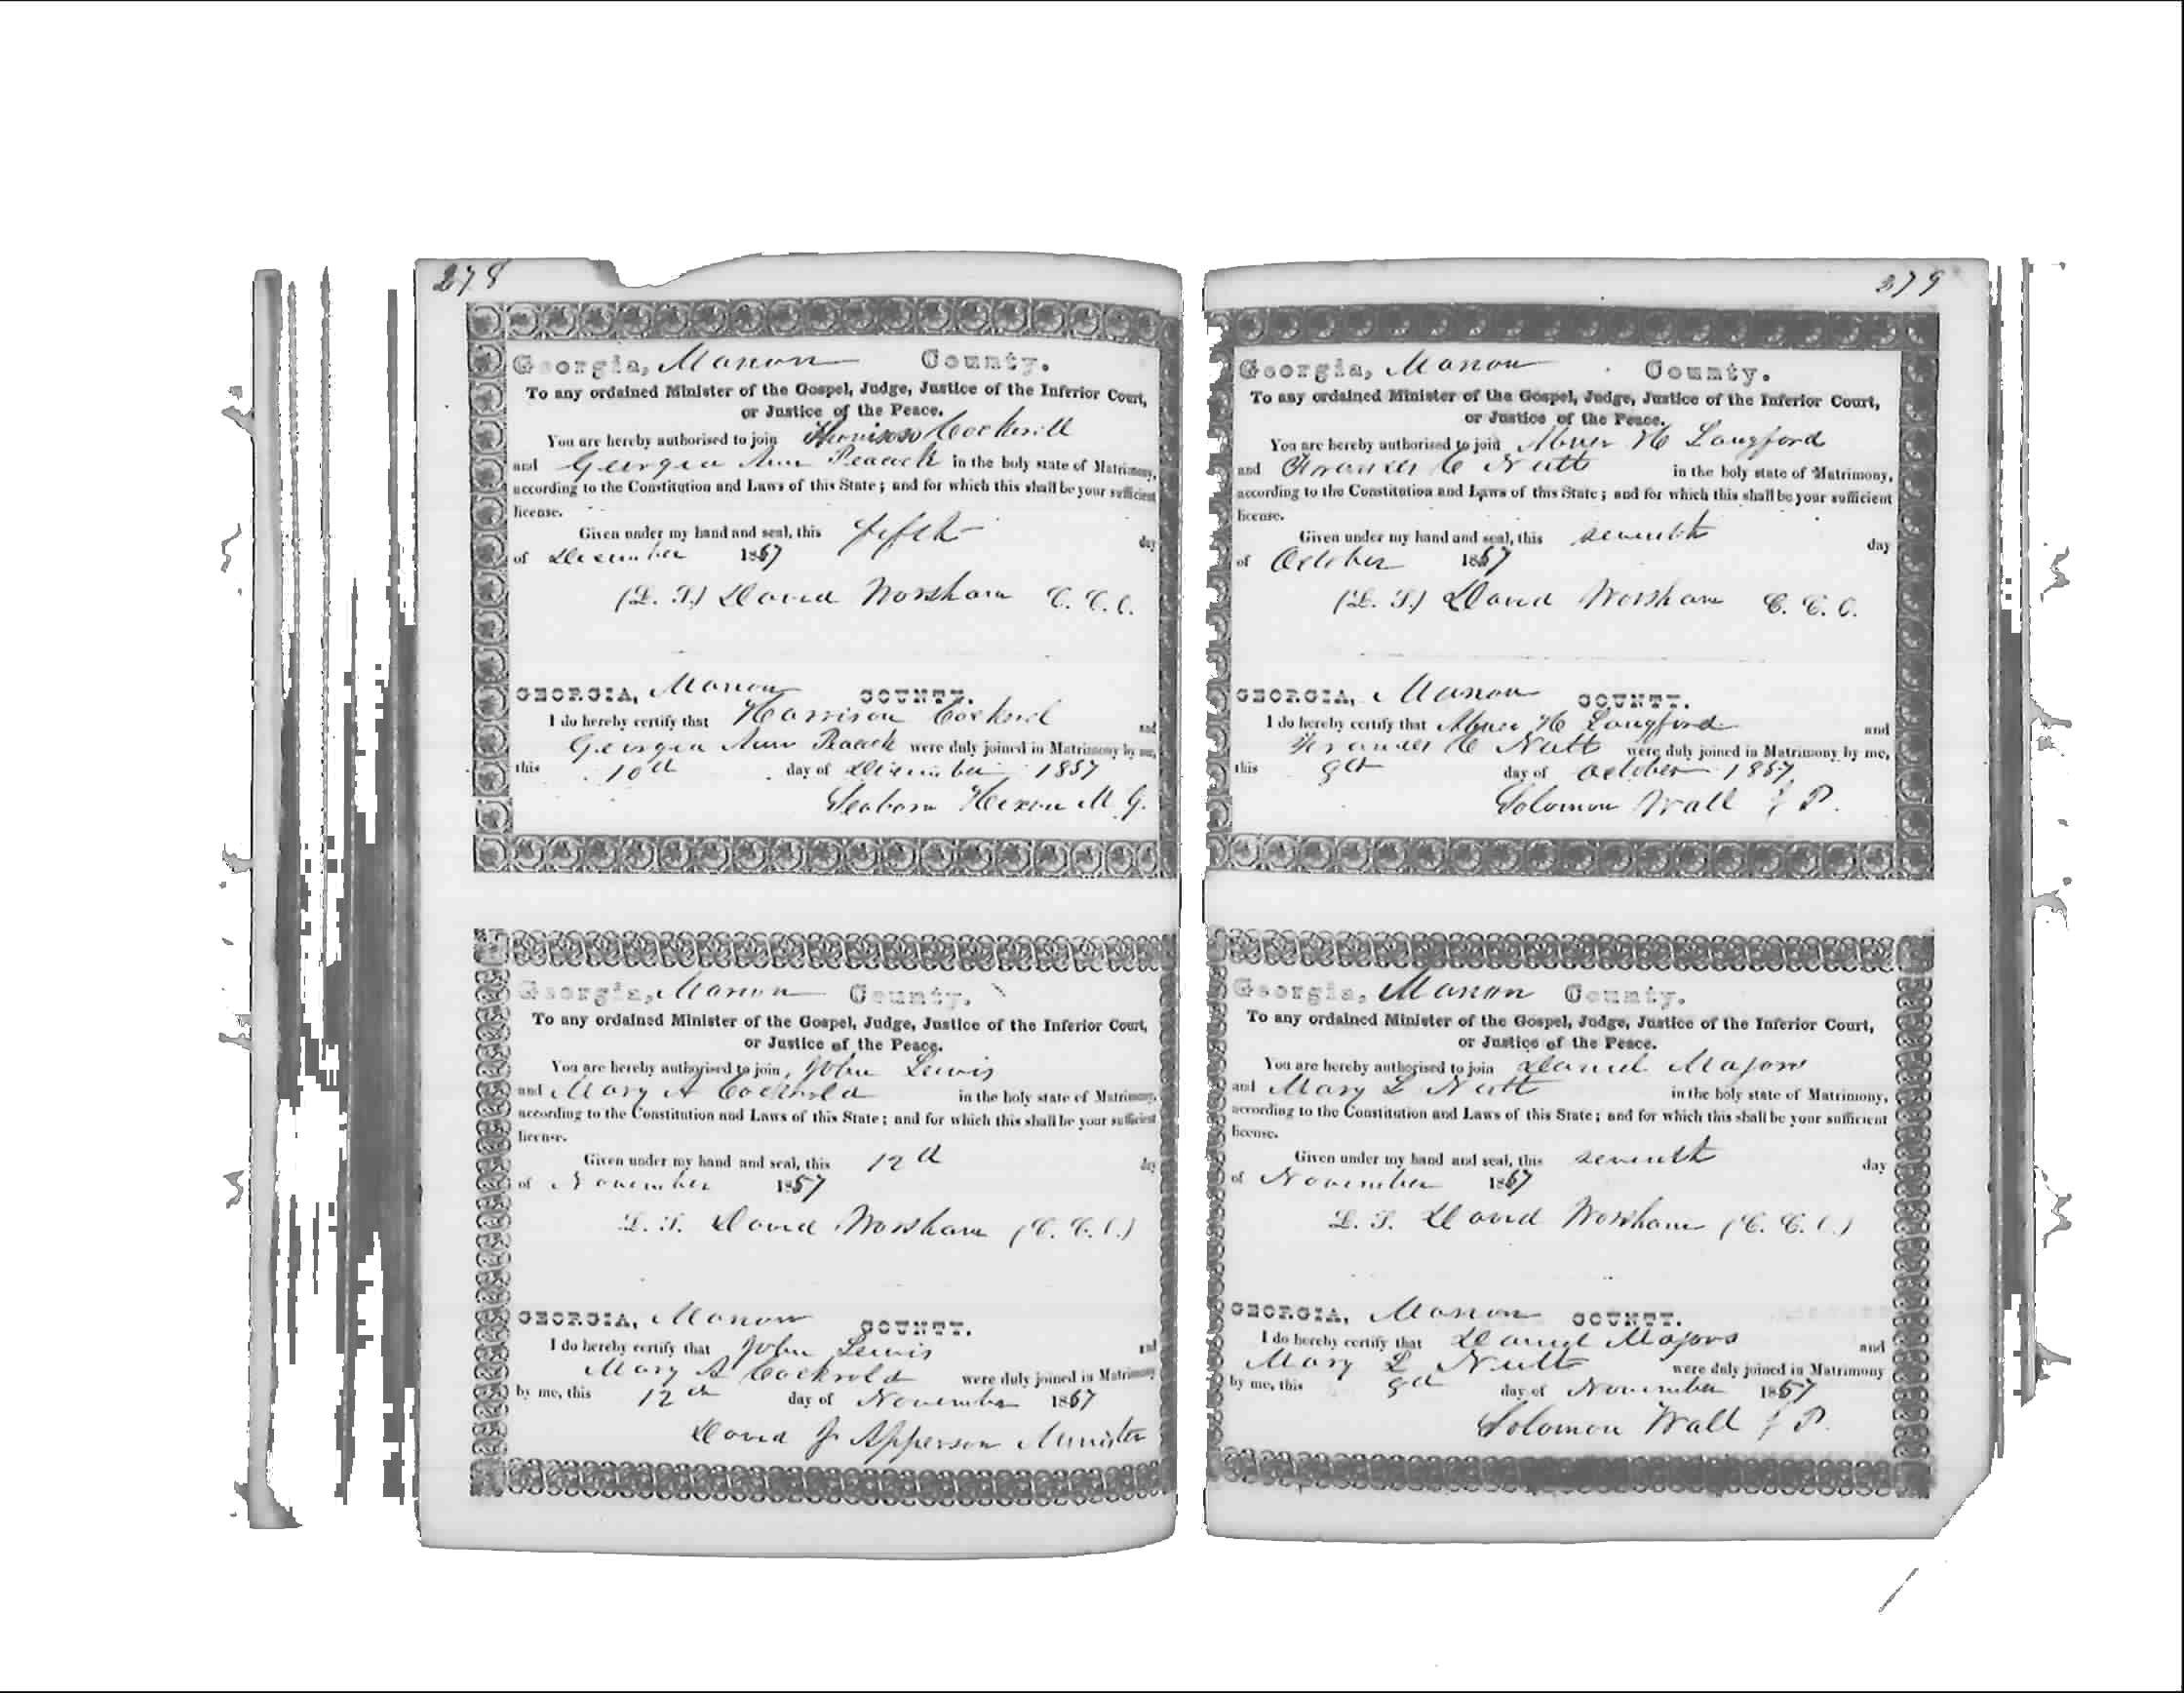 278
Georgia, Marion County.
To any ordained Minister of the Gospel, Judge, Justice of the Inferior Court,
or Justice of the Peace.
You are hereby authorised to join Harrison Cockrill
and Georgia Ann Peacock in the holy state of Matrimony,
according to the Constitution and Laws of this State; and for which this shall be your sufficient
license.
Given under my hand and seal, this fifth day
of December 1857
(L. S.) David Worsham C. C. O.
GEORGIA, Marion COUNTY.
I do hereby certify that Harrison Cockrel and
Georgia Ann Peacock were duly joined in Matrimony by me,
this 10th day of December 1857
Seaborn Hixon M. G.
Georgia, Marion County.
To any ordained Minister of the Gospel, Judge, Justice of the Inferior Court,
or Justice of the Peace.
You are hereby authorised to join John Lewis
and Mary A Cockrold in the holy state of Matrimony,
according to the Constitution and Laws of this State; and for which this shall be your sufficient
license.
Given under my hand and seal, this 12th day
of November 1857
L. S. David Worsham (C. C. O.)
GEORGIA, Marion COUNTY.
I do hereby certify that John Lewis and
Mary A Cockrold were duly joined in Matrimony
by me, this 12th day of November 1857
David J Apperson Minister
279
Georgia, Marion County.
To any ordained Minister of the Gospel, Judge, Justice of the Inferior Court,
or Justice of the Peace.
You are hereby authorised to join Abner H Langford
and Frances C Nutt in the holy state of Matrimony,
according to the Constitution and Laws of this State; and for which this shall be your sufficient
license.
Given under my hand and seal, this seventh day
of October 1857
(L. S.) David Worsham C. C. O.
GEORGIA, Marion COUNTY.
I do hereby certify that Abner H Langford and
Frances C Nutt were duly joined in Matrimony by me,
this 8th day of October 1857.
Solomon Wall J P.
Georgia, Marion County.
To any ordained Minister of the Gospel, Judge, Justice of the Inferior Court,
or Justice of the Peace.
You are hereby authorised to join Daniel Majors
and Mary L Nutt in the holy state of Matrimony,
according to the Constitution and Laws of this State; and for which this shall be your sufficient
license.
Given under my hand and seal, this seventh day
of November 1857
L. S. David Worsham (C. C. O.)
GEORGIA, Marion COUNTY.
I do hereby certify that Daniel Majors and
Mary L Nutt were duly joined in Matrimony
by me, this 8th day of November 1857
Solomon Wall J P.